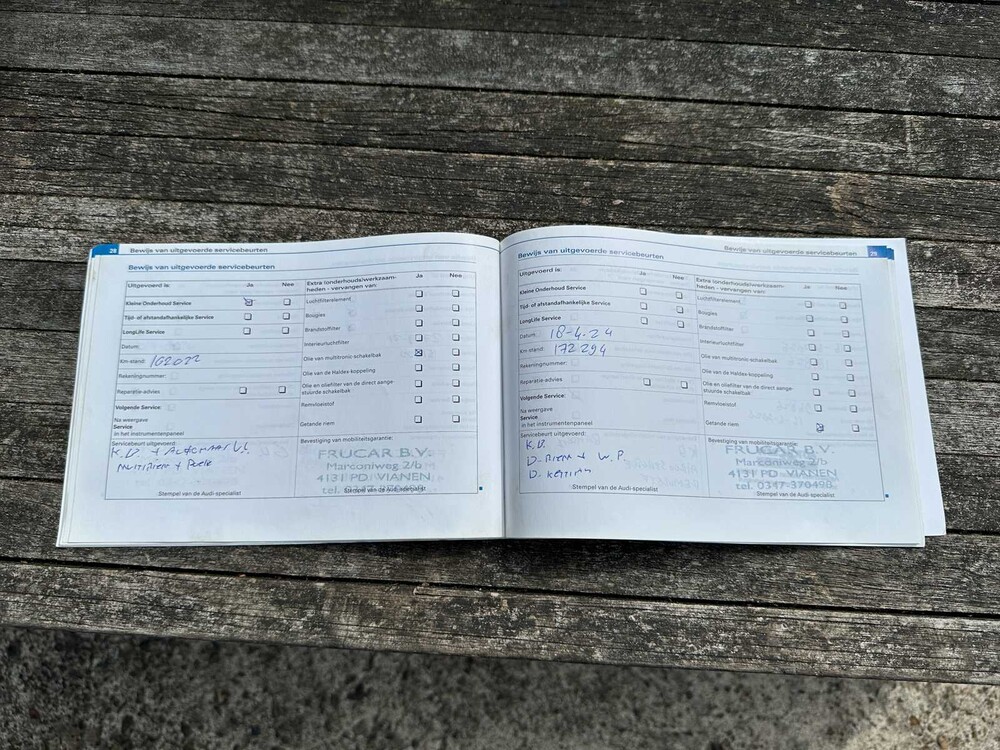 28 Bewijs van uitgevoerde servicebeurten
Bewijs van uitgevoerde servicebeurten
Uitgevoerd is: Ja Nee
Kleine Onderhoud Service
Tijd- of afstandafhankelijke Service
LongLife Service
Datum:
Km-stand: 162022
Rekeningnummer:
Reparatie-advies
Volgende Service:
Na weergave
Service
in het instrumentenpaneel
Extra (onderhouds)werkzaam-
heden - vervangen van: Ja Nee
Luchtfilterelement
Bougies
Brandstoffilter
Interieurluchtfilter
Olie van multitronic-schakelbak
Olie van de Haldex-koppeling
Olie en oliefilter van de direct aange-
stuurde schakelbak
Remvloeistof
Getande riem
Servicebeurt uitgevoerd:
Multiriem +
Bevestiging van mobiliteitsgarantie:
FRUCAR B.V.
Marconiweg 2/b
4131 PD VIANEN
Stempel van de Audi-specialist
Stempel van de Audi-specialist
Bewijs van uitgevoerde servicebeurten 29
Bewijs van uitgevoerde servicebeurten
Uitgevoerd is: Ja Nee
Kleine Onderhoud Service
Tijd- of afstandafhankelijke Service
LongLife Service
Datum: 18-4-24
Km-stand: 172294
Rekeningnummer:
Reparatie-advies
Volgende Service:
Na weergave
Service
in het instrumentenpaneel
Extra (onderhouds)werkzaam-
heden - vervangen van: Ja Nee
Luchtfilterelement
Bougies
Brandstoffilter
Interieurluchtfilter
Olie van multitronic-schakelbak
Olie van de Haldex-koppeling
Olie en oliefilter van de direct aange-
stuurde schakelbak
Remvloeistof
Getande riem
Servicebeurt uitgevoerd:
D-Riem + W.P.
Bevestiging van mobiliteitsgarantie:
FRUCAR B.V.
Marconiweg 2/b
4131 PD VIANEN
tel. 0347-370498
Stempel van de Audi-specialist
Stempel van de Audi-specialist